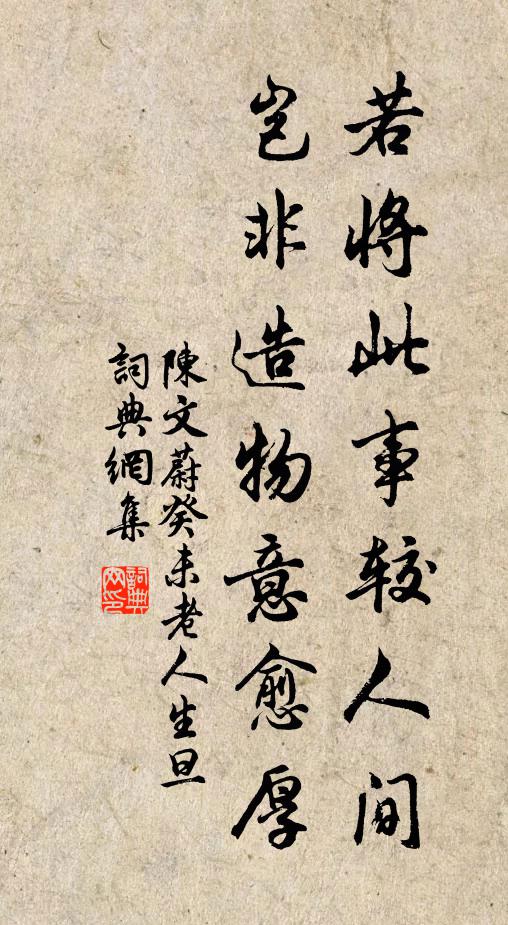 若将此事较人间
岂非造物意愈厚
陳文蔚癸未老人生旦
詞典網集
詞典網印